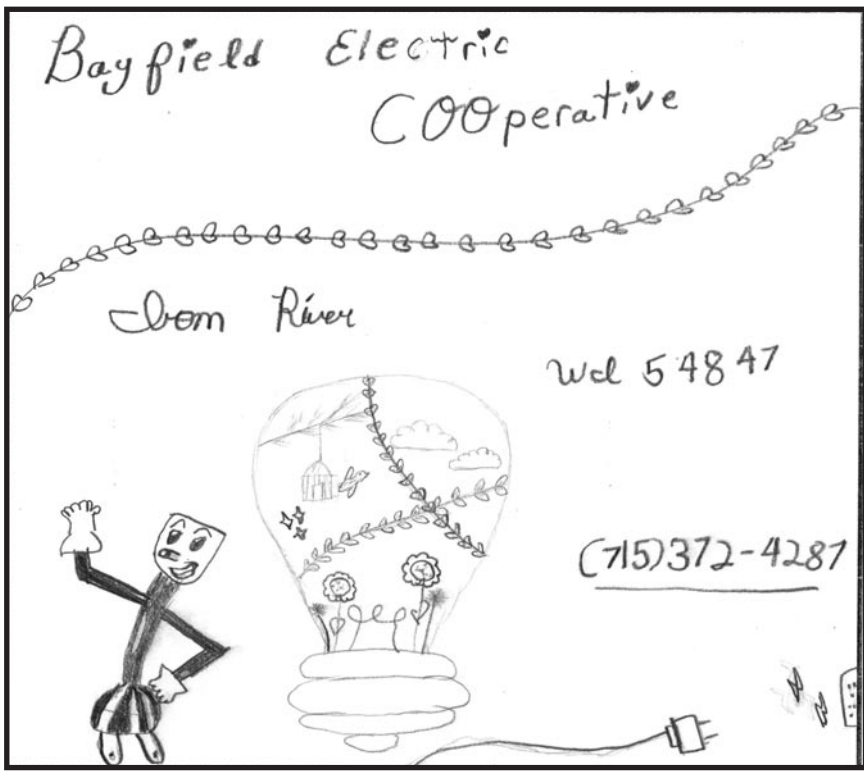 Bayfield Electric
COOperative
Iron River
WI 54847
(715)372-4287